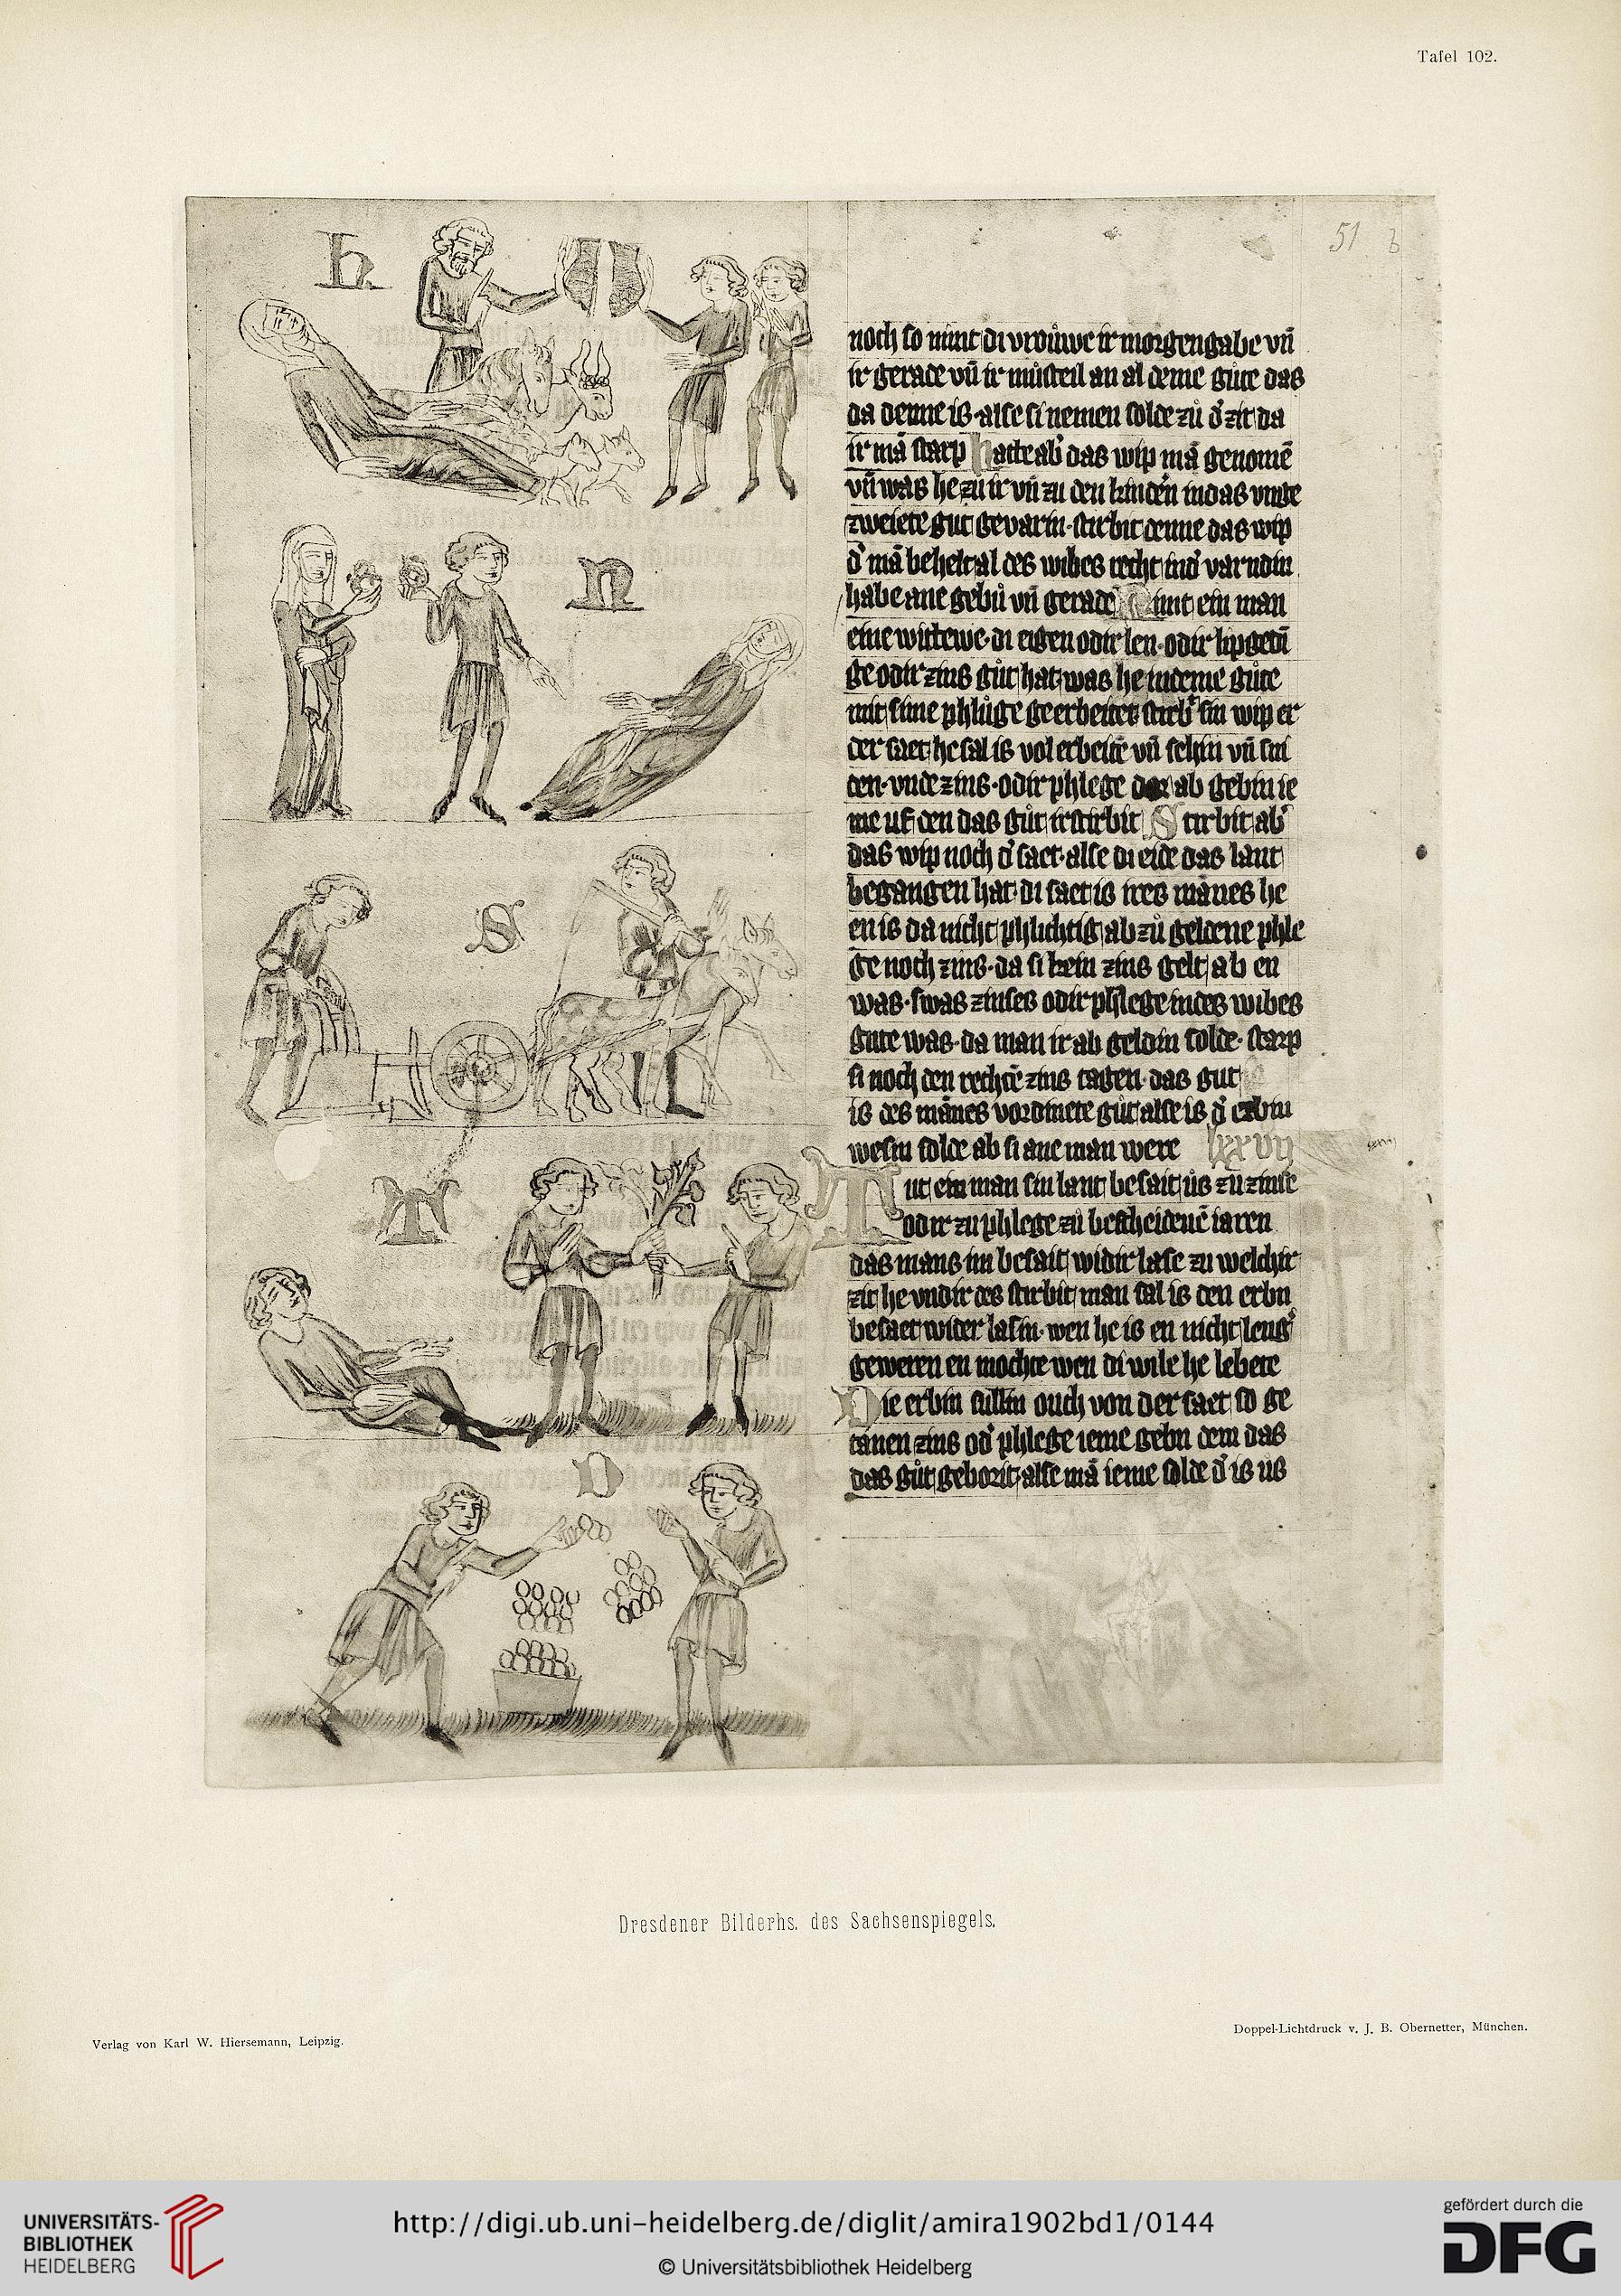 Tafel 102.
51 b
h
noch so nimt di vrouwe ir morgengabe vn̄
ir gerade vn̄ ir musteil an al deme gute das
da denne is · alse si nemen solde zů d' zit da
ir mā starp Hatte ab' das wip mā genomē
vn̄ was he zu ir vn̄ zu den kinden in das vnge
zweiete gut gevarin · stirbit denne das wip
d' mā beheltz al des wibes recht in d' varndin
habe ane gebů vn̄ gerade Nimt ein man
n
eine wittewe · di eigen odir len · odir lipgedī
ge odir zins gůt hat was he in deme gůte
mit sime phlůge geerbeitet stirb' sin wip er
der saet he sal is vol erbeitē vn̄ sehin vn̄ sni
den · vnde zins · odir phlege dor ab gebin ie
me uf den das gůt irstirbit Stirbit ab'
das wip noch d' saet · alse di eide das lant
S
begangen hat · di saet is ires mānes he
en is da nicht phlichtig ab zů geldene phle
ge noch zins · da si kein zins gelt ab en
was · swas zinses odir phlege in des wibes
gute was · da man ir ab geldin solde · starp
si noch den rechtē zins tagen · das gut
is des mānes vordinete gůt alse is d' erbin
wesin solde ab si ane man were lxxvii
T
Tut ein man sin lant besait ůs zů zinse
odir zu phlege zů bescheidenē iaren
das mans im besait widir lase zu welchir
zit he vndir des stirbit man sal is den erbn
besaet wider lasin · wen he is en nicht leng'
geweren en mochte wen di wile he lebete
Die erbin sullin ouch von der saet so ge
D
tanen zins od' phlege ieme gebn dem das
das gůt geborit alse mā ieme solde d' is ůs
Dresdener Bilderhs. des Sachsenspiegels.
Verlag von Karl W. Hiersemann, Leipzig.
Doppel-Lichtdruck v. J. B. Obernetter, München.
UNIVERSITÄTS-
BIBLIOTHEK
HEIDELBERG
http://digi.ub.uni-heidelberg.de/diglit/amira1902bd1/0144
© Universitätsbibliothek Heidelberg
gefördert durch die
DFG